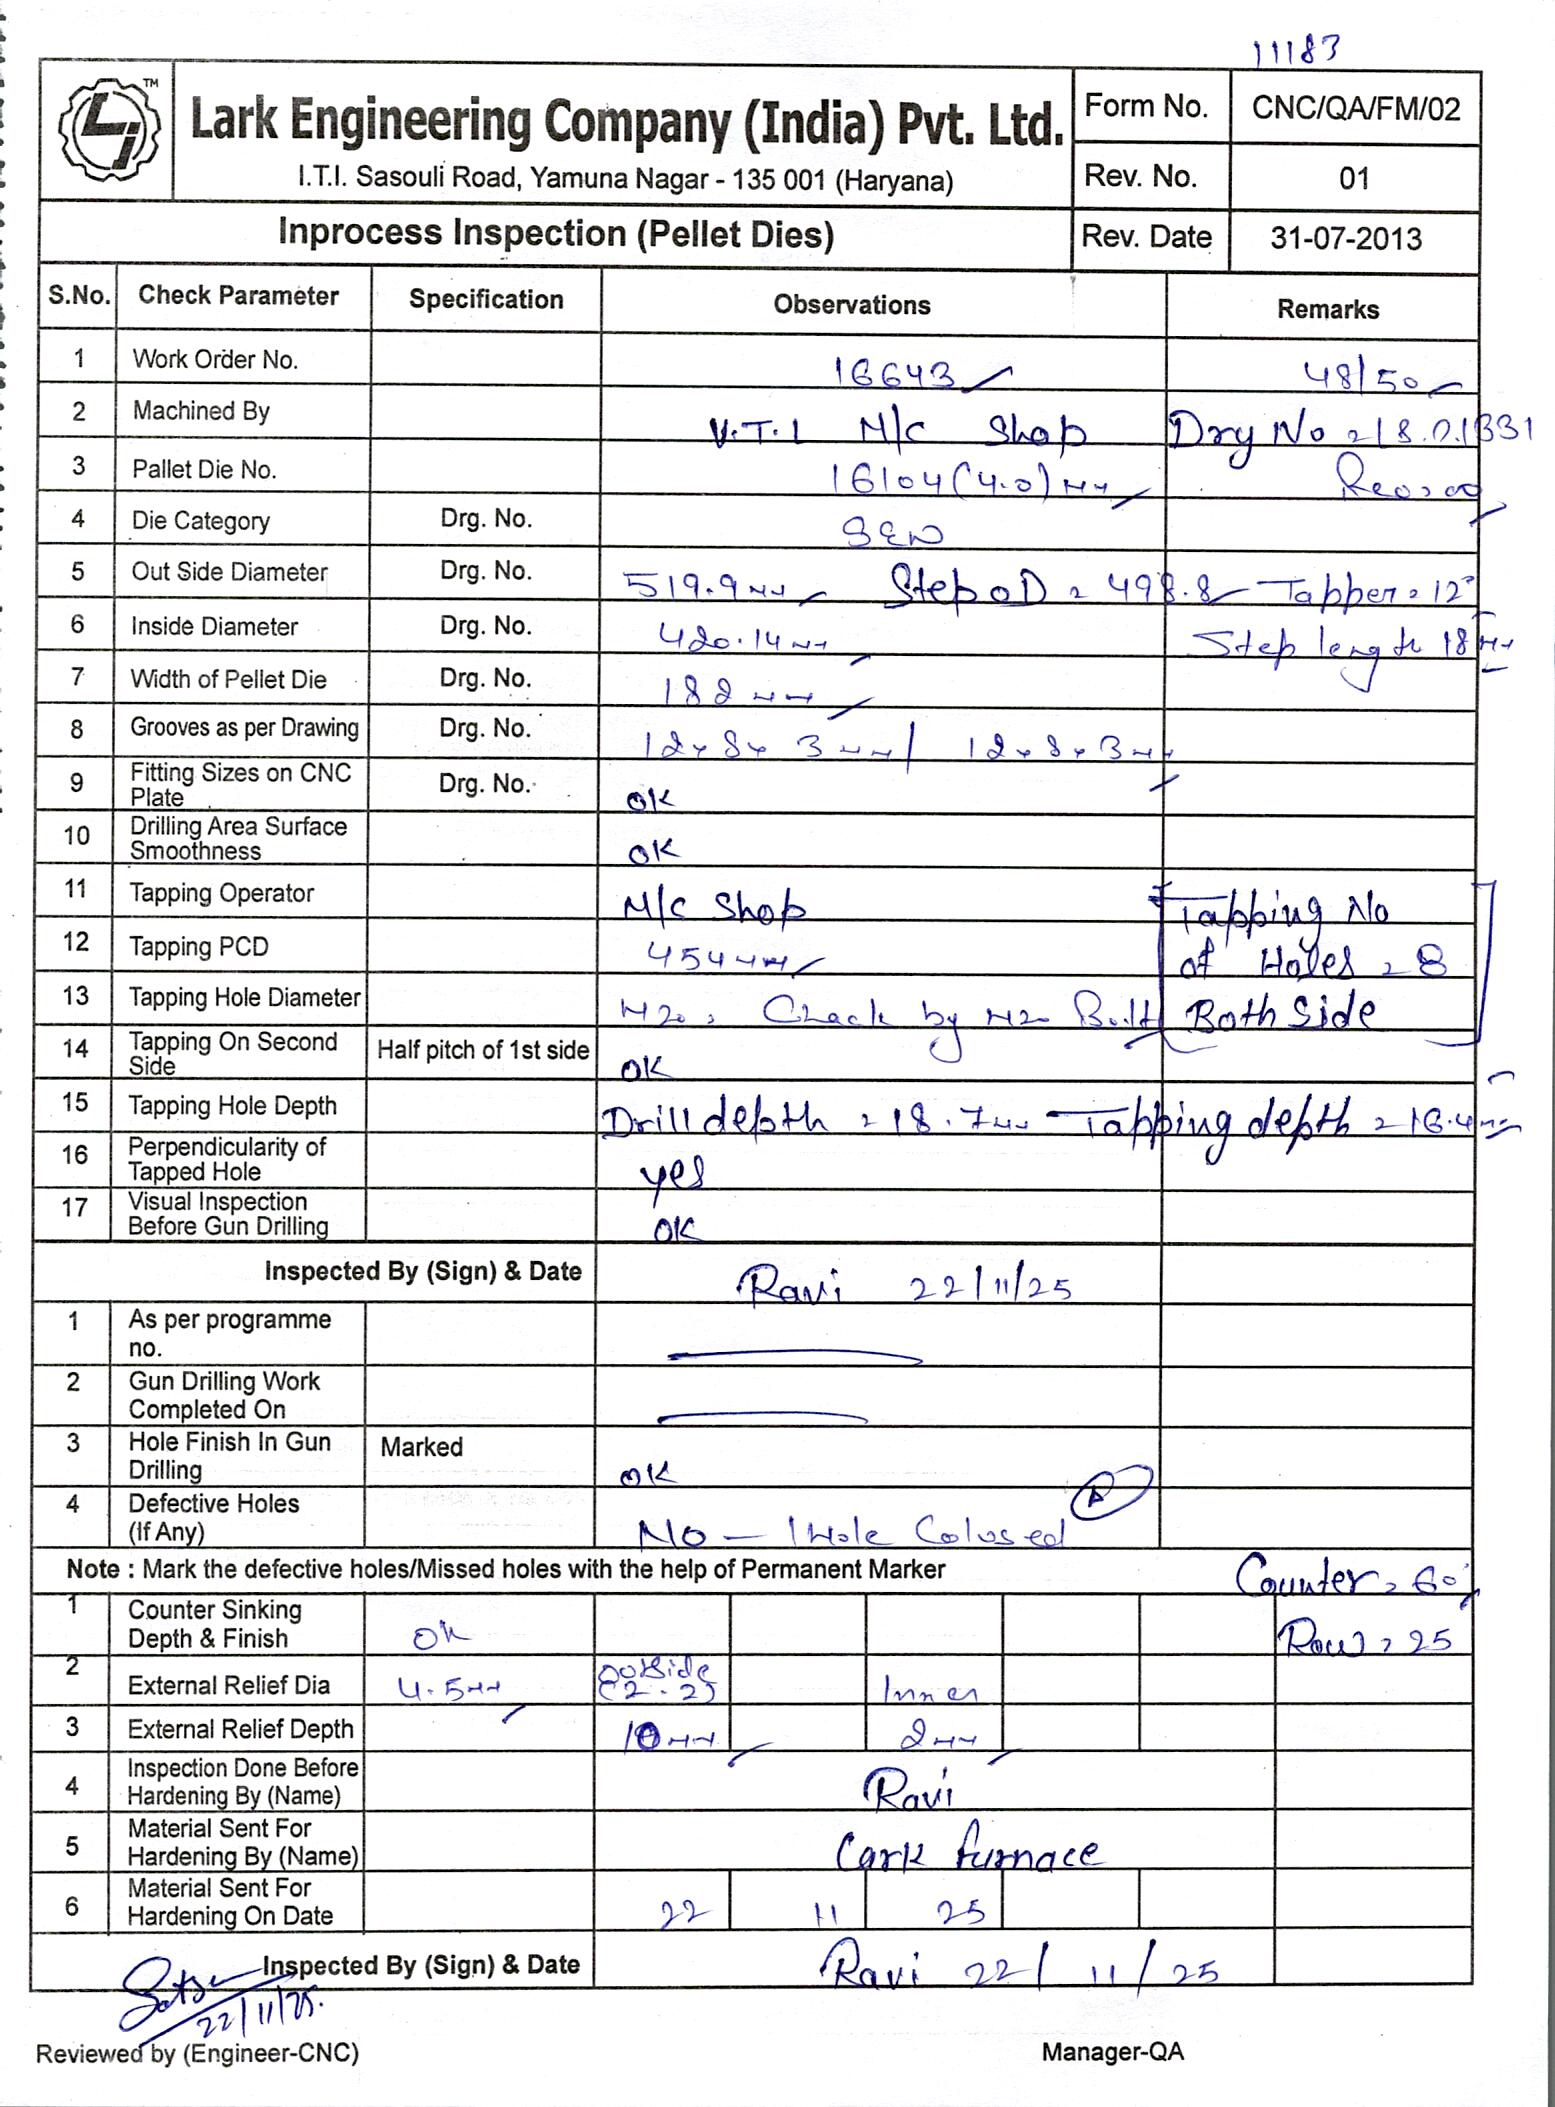 11183
TM
Lark Engineering Company (India) Pvt. Ltd.
I.T.I. Sasouli Road, Yamuna Nagar - 135 001 (Haryana)
Form No. CNC/QA/FM/02
Rev. No. 01
Inprocess Inspection (Pellet Dies)
Rev. Date 31-07-2013
S.No. Check Parameter Specification Observations Remarks
1 Work Order No. 16643 48/50
2 Machined By V.T.I M/C Shop Drg No = 18.0.1331
3 Pallet Die No. 16104 (4.0) mm
4 Die Category Drg. No.
5 Out Side Diameter Drg. No. 519.9mm Step OD = 498.8 Tapper = 12°
6 Inside Diameter Drg. No. 420.14mm Step length 18mm
7 Width of Pellet Die Drg. No. 182mm
8 Grooves as per Drawing Drg. No. 12x8x3mm/ 12x8x3mm
9 Fitting Sizes on CNC Plate Drg. No. OK
10 Drilling Area Surface Smoothness OK
11 Tapping Operator M/C Shop Tapping No
12 Tapping PCD 454mm of Holes = 8
13 Tapping Hole Diameter M20, Chack by M20 Bolt Both Side
14 Tapping On Second Side Half pitch of 1st side OK
15 Tapping Hole Depth Drill depth = 18.7mm Tapping depth = 16.4mm
16 Perpendicularity of Tapped Hole yes
17 Visual Inspection Before Gun Drilling OK
Inspected By (Sign) & Date Ravi 22/11/25
1 As per programme no.
2 Gun Drilling Work Completed On
3 Hole Finish In Gun Drilling Marked OK
4 Defective Holes (If Any) No - 1 Hole Colosed A
Note : Mark the defective holes/Missed holes with the help of Permanent Marker Counter = 60°
1 Counter Sinking Depth & Finish OK Row = 25
2 External Relief Dia 4.5mm outside (2.2) Inner
3 External Relief Depth 10mm 2mm
4 Inspection Done Before Hardening By (Name) Ravi
5 Material Sent For Hardening By (Name) Lark furnace
6 Material Sent For Hardening On Date 22 11 25
Inspected By (Sign) & Date Ravi 22/11/25
22/11/25.
Reviewed by (Engineer-CNC) Manager-QA